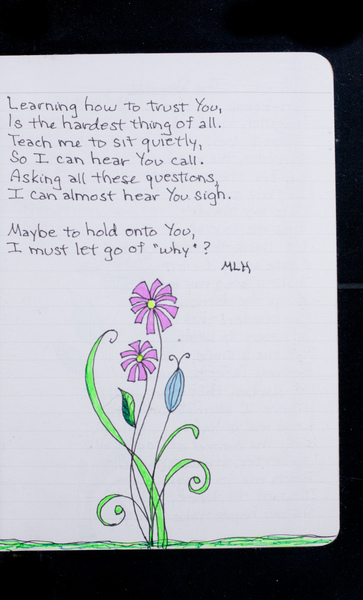 Learning how to trust You,
Is the hardest thing of all.
Teach me to sit quietly,
So I can hear You call.
Asking all these questions,
I can almost hear You sigh.
Maybe to hold onto You,
I must let go of "why"?
MLH